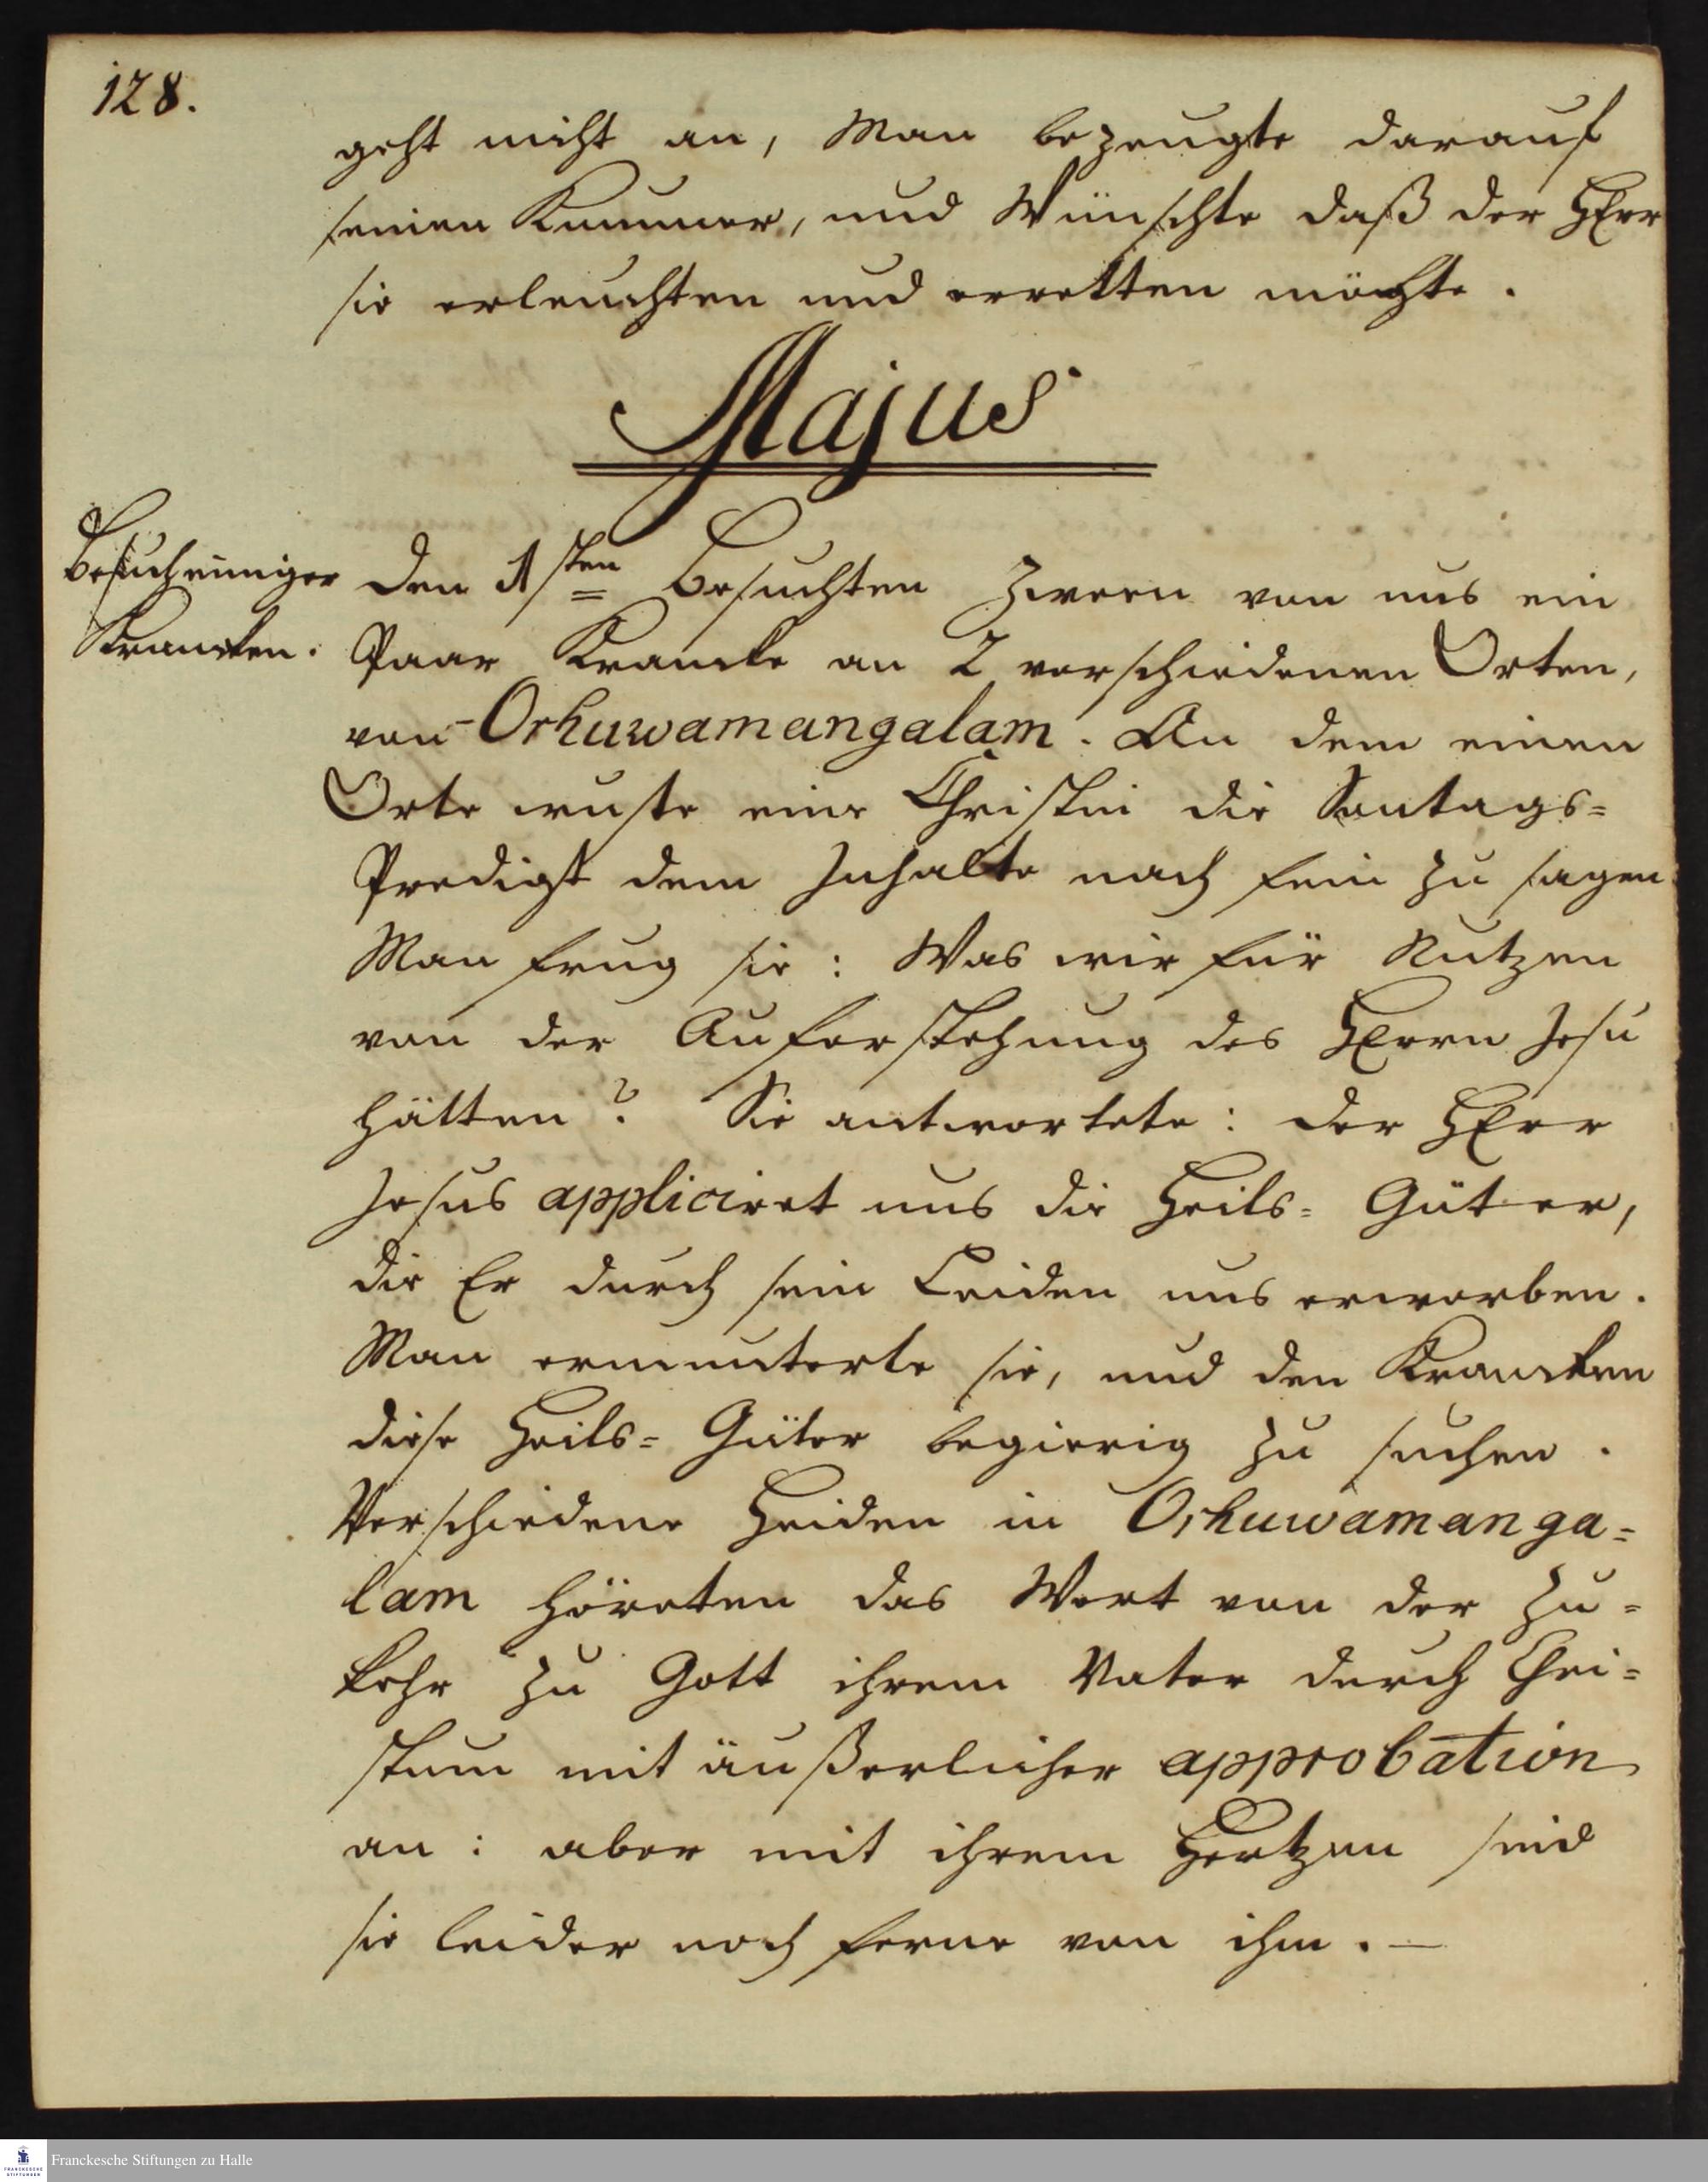 128.
geht nicht an, Man bezeugte darauf
seinen Kummer, und Wünschte daß der HErr
sie erleuchten und erretten möchte.
Majus
Besuch einiger
Krancken.
Den 1sten besuchten Zween von uns ein
Paar Krancke an 2 verschiedenen Orten,
von Orhuwamangalam. An dem einen
Orte wuste eine Christin die Sontags=
Predigt dem Inhalte nach fein zu sagen.
Man frug sie: Was wir für Nutzen
von der Auferstehung des HErrn Jesu
hätten? Sie antwortete: der HErr
Jesus appliciret uns die Heils= Güter,
die Er durch sein Leiden uns erworben.
Man ermunterte sie, und den Krancken
diese Heils= Güter begierig zu suchen.
Verschiedene Heiden in Orhuwamanga=
lam höreten das Wort von der Zu=
kehr zu Gott ihrem Vater durch Chri=
stum mit äußerlicher approbation
an: aber mit ihrem Hertzen sind
sie leider noch ferne von ihm. —
Franckesche Stiftungen zu Halle
FRANCKESCHE
STIFTUNGEN